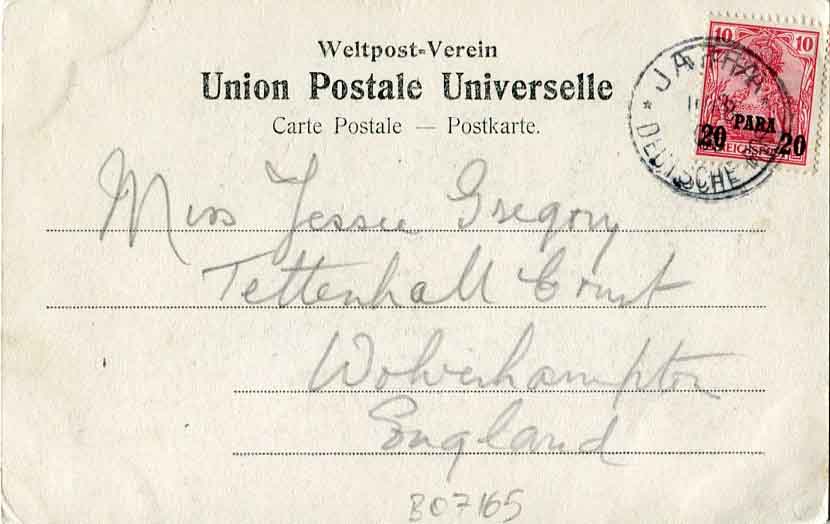 Weltpost-Verein
Union Postale Universelle
Carte Postale — Postkarte.
10 10
PARA
20 20
REICHSPOST
JAFFA
DEUTSCHE
Miss Jessie Gregory
Tettenhall Court
Wolverhampton
England
B07165